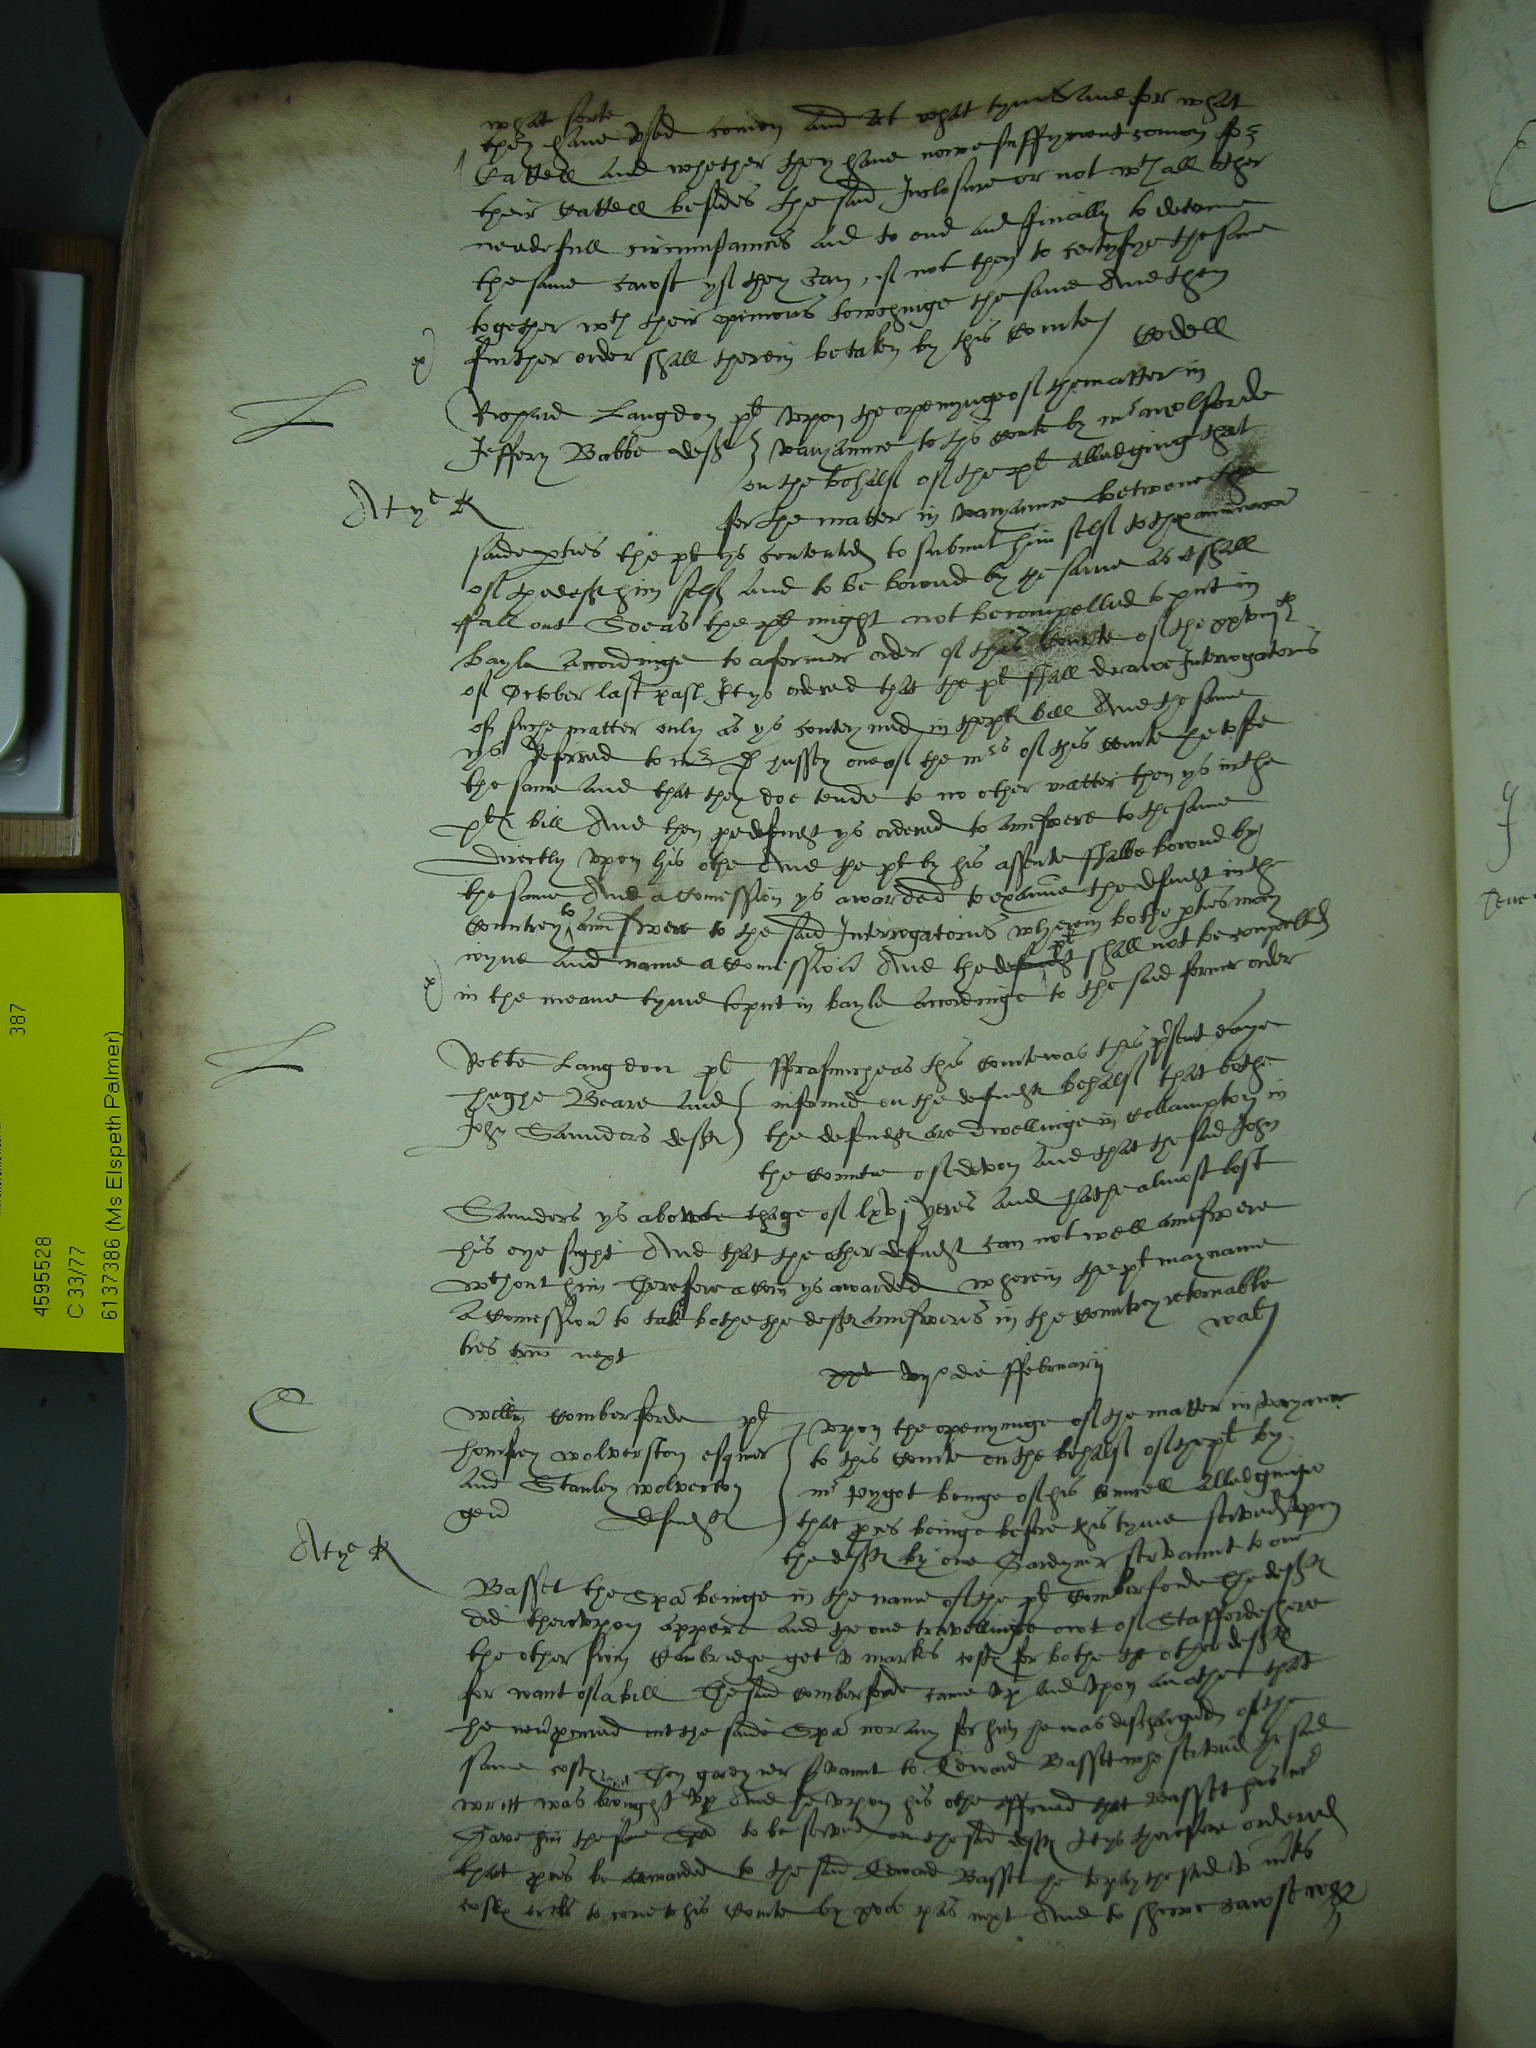 what sorte
they have used comon and at what tymes and for what
Cattell and whether they have nowe suffycyent comon for
their Cattell besides the said Inclosure or not wth all other
nedefull circumstances and to end and ffinally to determe
the same cawse yf they can, if not then to certyfye the same
together wth their opinions towchinge the same And then
further order shall therein be taken by this Courte
Cordell
L
Richard Langdon pl
Jeffery Babbe deft
upon the openynge of the matter in
varyaunce to this Courte by mr
on the behalf of the pl alledging that
At ye R
for the matter in varyaunce betwene the
saide pties the pl ys contented to submit him self to
of the deft him self and to be bounde by the same as it shall
fall out So as the pl might not be compelled to put in
bayle accordinge to a former order of this Courte of the
of October last past It ys ordered that the pl shall drawe Interrogatories
of suche matter only as ys conteyned in the pls bill And the same
ys referred to mr D hussey one of the mrs of this Courte he to see
the same and that they doe tende to no other matter then ys in the
pls bill And then the defendt ys ordered to aunswere to the same
directly upon his othe And the pl by his assente shalbe bounde by
the same And a Comission ys awarded to examine the defendt in the
Countrey to aunswere to the said Interrogatories wherein bothe pties may
ioyne and name Comissioners And the defendt pl shall not be compelled
in the meane tyme to put in bayle accordinge to the said former order
L
Robte Langdon pl
hughe Beare and
John Saunders defts
fforasmuche as this Courte was this psent daye
informed on the defendts behalf that bothe
the defendts are dwellinge in Collampton in
the Countie of devon And that the said John
Saunders ys aboute thage of lxvj yeres And hathe almost lost
his eye sight And that the other defendt can not well aunswere
wthout him Therefore a Com ys awarded wherein the pl may name
Comissioners to take bothe the defts aunsweres in the Countrey retornable
tres trm next
die ffebruarij
C
Willm Comberforde pl
homfrey wolverston esquier
and Stanley wolverton
gen defendts
Upon the openynge of the matter in varyance
to this Courte on the behalf of the pl by
mr Pygot beinge of his Councell alledginge
that pces beinge before this tyme served upon
At ye R
the defts by one Gardyner servaunt to one
Basset the Spa beinge in the name of the pl Comberforde The defts
did thereupon appere and the one travellinge owt of Staffordeshere
the other from Cambridge got v markes costs for bothe the other defts
for want of a bill The said Comberforde came up and upon an othe that
he never pcured out the saide Spa nor any for him he was discharged of the
same costs Then gardyner servaunt to Edward Basset who served the said
writt was brought up And he upon his othe affirmed that Basset his mr
gave him the same Spa to be served on the said defts It ys therefore ordered
that pces be awarded to the said Edward Basset he to pay the said v mks
costs or els to come to this Courte by next And to shewe cawse why
387
4595528
C 33/77
6137386 (Ms Elspeth Palmer)